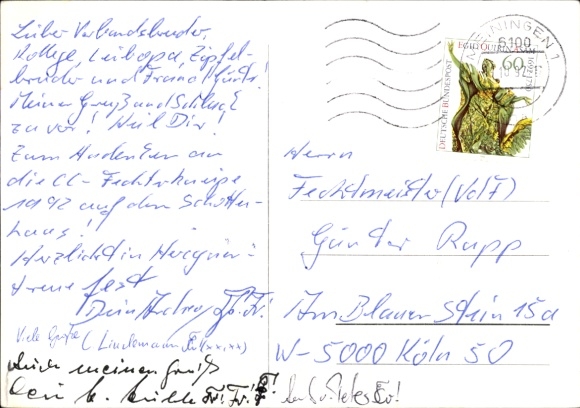 Lieber Verbandsbruder,
Kollege, Leibopa, Zipfel-
bruder und Freund Günter!
Meinen Gruß und Schlag
zuvor! Heil Dir!
Zum Andenken an
die CC-Fechterkneipe
1992 auf dem Schotten-
haus!
Herzlichst in
treue fest
Dein
Viele Grüße (Lindemann
Auch meinen Gruß
MEININGEN 1
6100
EGID QUIRIN ASAM
60
DEUTSCHE BUNDESPOST
Herrn
Fechtmeister (VdF)
Günter Rupp
Am Blauer Stein 15a
W-5000 Köln 50